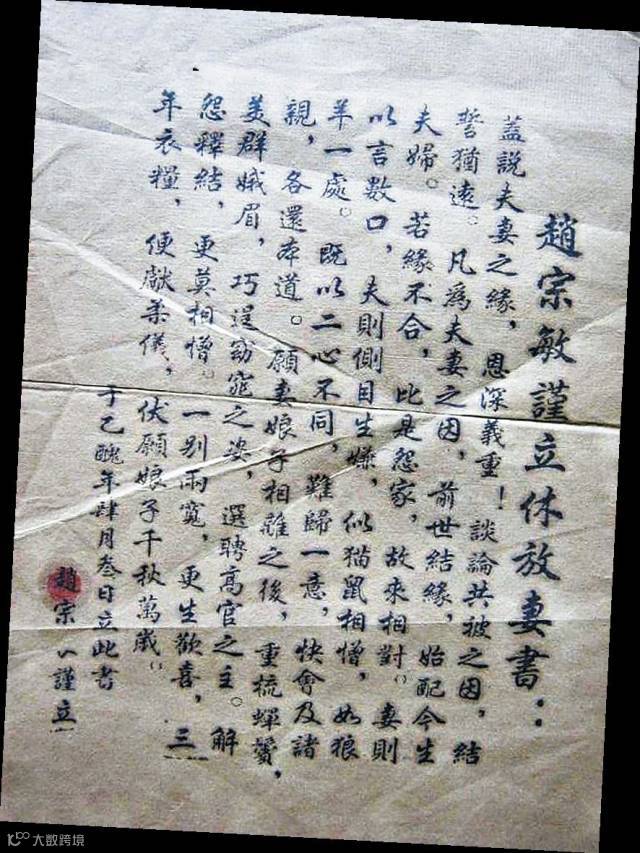 趙宗敏謹立休放妻書：
蓋說夫妻之緣，恩深義重！談論共被之因，結
誓猶遠。凡為夫妻之因，前世結緣，始配今生
夫婦。若緣不合，比是怨家，故來相對。妻則
以言數口，夫則側目生嫌，似猫鼠相憎，如狼
羊一處。既以二心不同，難歸一意，快會及諸
親，各還本道。願妻娘子相離之後，重梳蟬鬢，
美群娥眉，巧逞窈窕之姿，選聘高官之主。解
怨釋結，更莫相憎。一別兩寬，更生歡喜，三
年衣糧，便獻柔儀，伏願娘子千秋萬歲。
于己醜年肆月叁日立此書
趙宗 謹立
大数跨境